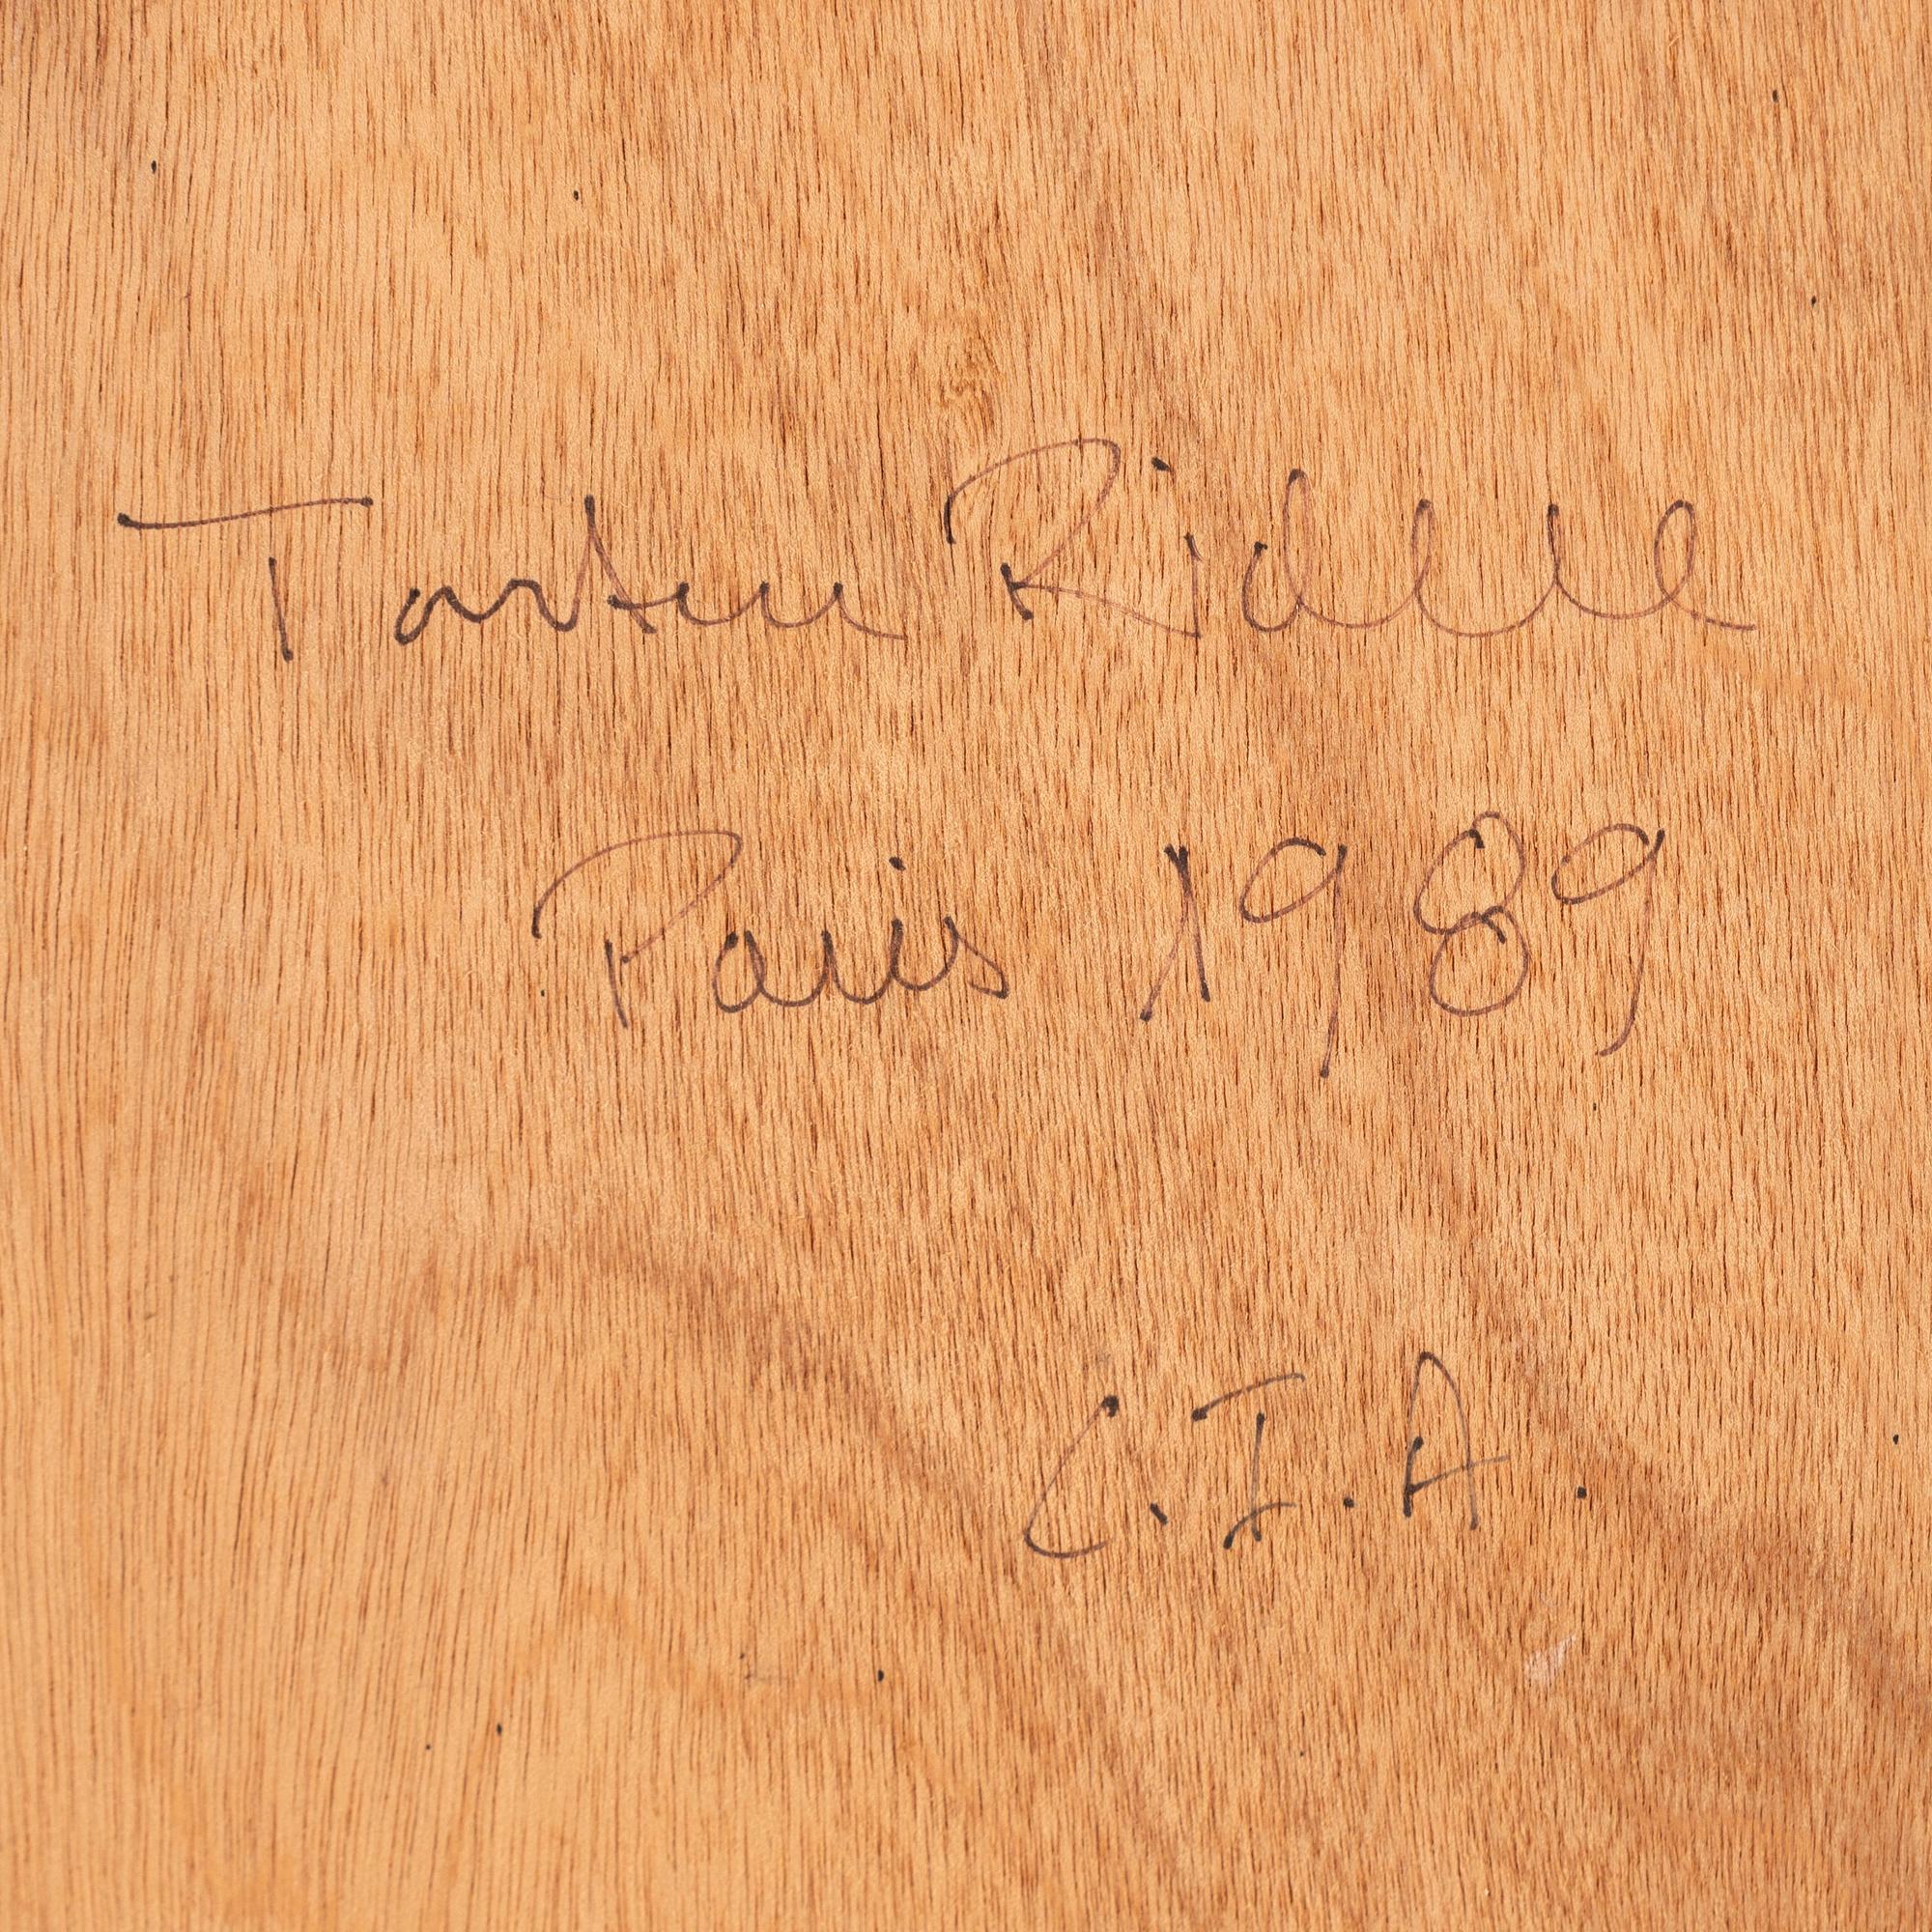 Torsten Ridell
Paris 1989
C.I.A.